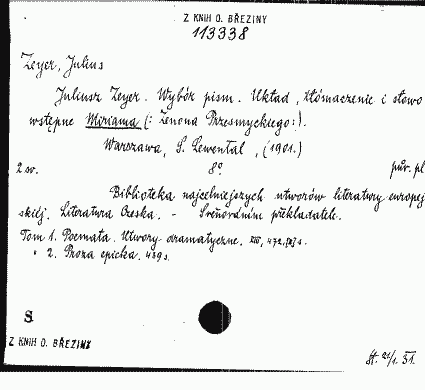 Z KNIH O. BŘEZINY
113338
Zeyer, Julius
Juliusz Zeyer. Wybór pism. Układ, tłómaczenie i słowo
wstępne Miriama (: Zenona Przesmyckiego:).
Warszawa, S. Lewental, (1901.)
2 sv. 8° pův. pl
Biblioteka najcelniejszych utworów literatury europej
skiej. Literatura Czeska. - S překladatele.
Tom 1. Poemata. Utwory dramatyczne. XIII, 472, s.
" 2. Proza epicka. 489 s.
S
Z KNIH O. BŘEZINY
51.